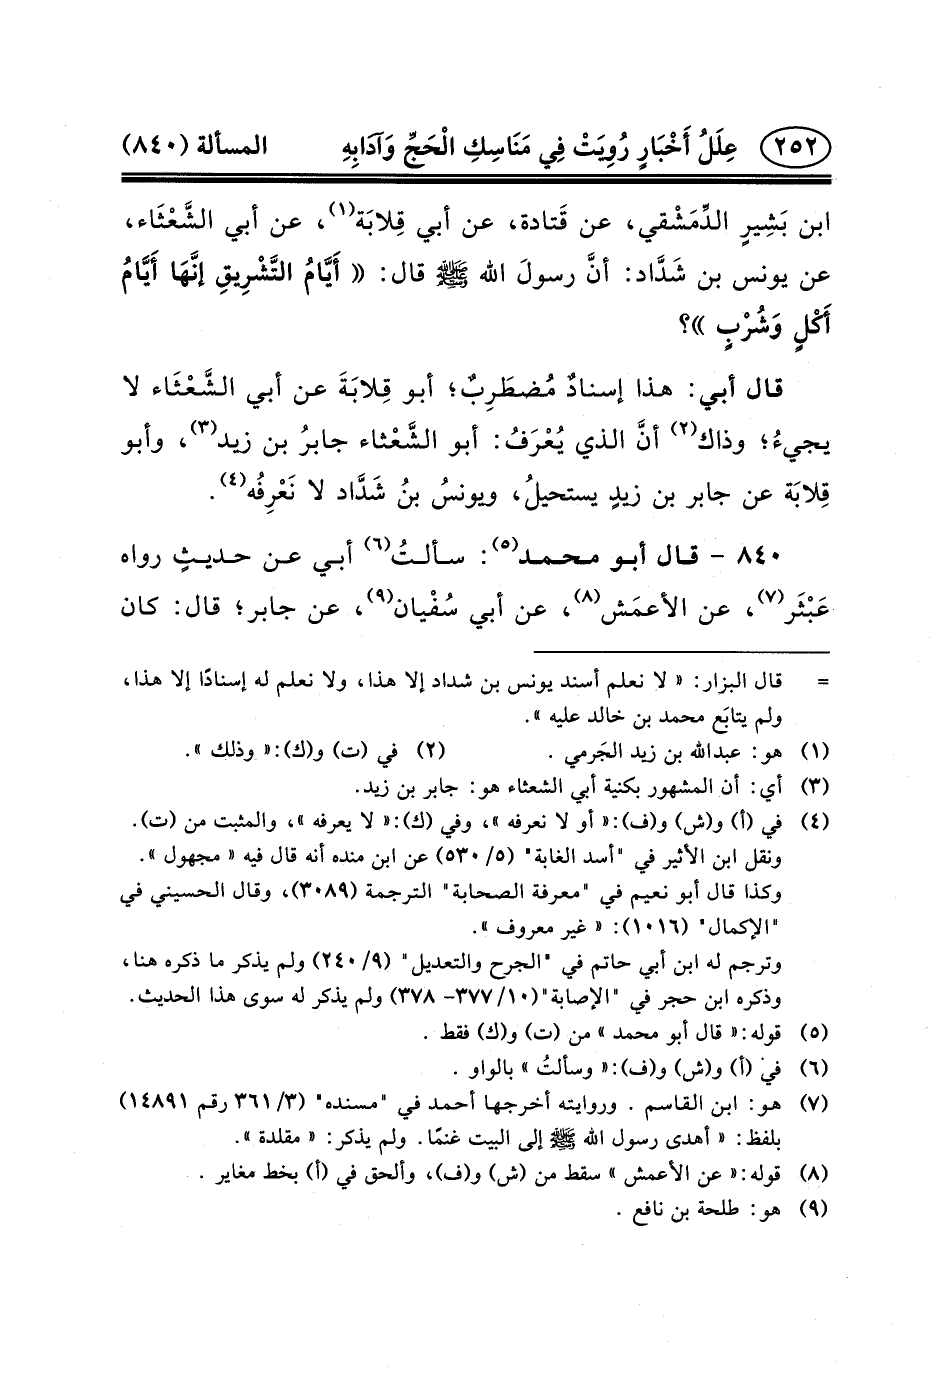 ٢٥٢ عِلَلُ أَخْبَارٍ رُوِيَتْ فِي مَنَاسِكِ الْحَجِّ وَآدَابِهِ المسألة (٨٤٠)
ابن بَشِيرٍ الدِّمَشْقي، عن قَتادة، عن أبي قِلابَة(١)، عن أبي الشَّعْثَاء،
عن يونس بن شَدَّاد: أنَّ رسولَ الله ﷺ قال: « أَيَّامُ التَّشْرِيقِ إِنَّهَا أَيَّامُ
أَكْلٍ وَشُرْبٍ »؟
قال أبي: هذا إسنادٌ مُضطَرِبٌ؛ أبو قِلابَةَ عن أبي الشَّعْثَاء لا
يجيءُ؛ وذاك(٢) أنَّ الذي يُعْرَفُ: أبو الشَّعْثاء جابرُ بن زيد(٣)، وأبو
قِلابَة عن جابر بن زيدٍ يستحيلُ، ويونسُ بنُ شَدَّاد لا نَعْرِفُه(٤).
٨٤٠ - قال أبو محمد(٥): سألتُ(٦) أبي عن حديثٍ رواه
عَبْثَر(٧)، عن الأعمَش(٨)، عن أبي سُفْيان(٩)، عن جابر؛ قال: كان
= قال البزار: « لا نعلم أسند يونس بن شداد إلا هذا، ولا نعلم له إسنادًا إلا هذا،
ولم يتابَع محمد بن خالد عليه ».
(١) هو: عبدالله بن زيد الجَرمي . (٢) في (ت) و(ك):« وذلك ».
(٣) أي: أن المشهور بكنية أبي الشعثاء هو: جابر بن زيد.
(٤) في (أ) و(ش) و(ف):« أو لا نعرفه »، وفي (ك):« لا يعرفه »، والمثبت من (ت).
ونقل ابن الأثير في "أسد الغابة" (٥/ ٥٣٠) عن ابن منده أنه قال فيه « مجهول ».
وكذا قال أبو نعيم في "معرفة الصحابة" الترجمة (٣٠٨٩)، وقال الحسيني في
"الإكمال" (١٠١٦): « غير معروف ».
وترجم له ابن أبي حاتم في "الجرح والتعديل" (٩/ ٢٤٠) ولم يذكر ما ذكره هنا،
وذكره ابن حجر في "الإصابة"(١٠/ ٣٧٧- ٣٧٨) ولم يذكر له سوى هذا الحديث.
(٥) قوله:« قال أبو محمد » من (ت) و(ك) فقط .
(٦) في (أ) و(ش) و(ف):« وسألتُ » بالواو .
(٧) هو: ابن القاسم . وروايته أخرجها أحمد في "مسنده" (٣/ ٣٦١ رقم ١٤٨٩١)
بلفظ: « أهدى رسول الله ﷺ إلى البيت غنمًا. ولم يذكر: « مقلدة ».
(٨) قوله:« عن الأعمش » سقط من (ش) و(ف)، وألحق في (أ) بخط مغاير .
(٩) هو: طلحة بن نافع .